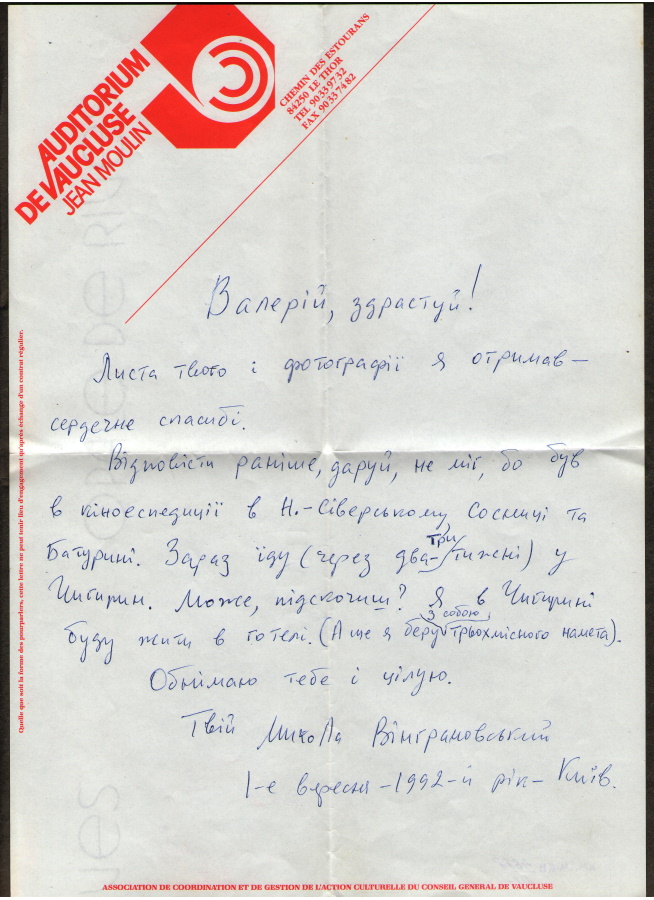 AUDITORIUM
DE VAUCLUSE
JEAN MOULIN
CHEMIN DES ESTOURANS
84250 LE THOR
TEL 90 33 97 32
FAX 90 33 74 82
Валерій, здрастуй!
Листа твого і фотографії я отримав –
сердечне спасибі.
Відповісти раніше, даруй, не міг, бо був
в кіноеспедиції в Н.-Сіверському, Сосниці та
Батурині. Зараз їду (через два-три тижні) у
Чигирин. Може, підскочиш? Я в Чигирині
буду жити в готелі. (А ще я беру з собою трьохмісного намета).
Обнімаю тебе і цілую.
Твій Микола Вінграновський
1-е вересня – 1992-й рік – Київ.
Quelle que soit la forme des pourparlers, cette lettre ne peut tenir lieu d'engagement qu'après échange d'un contrat régulier.
ASSOCIATION DE COORDINATION ET DE GESTION DE L'ACTION CULTURELLE DU CONSEIL GENERAL DE VAUCLUSE